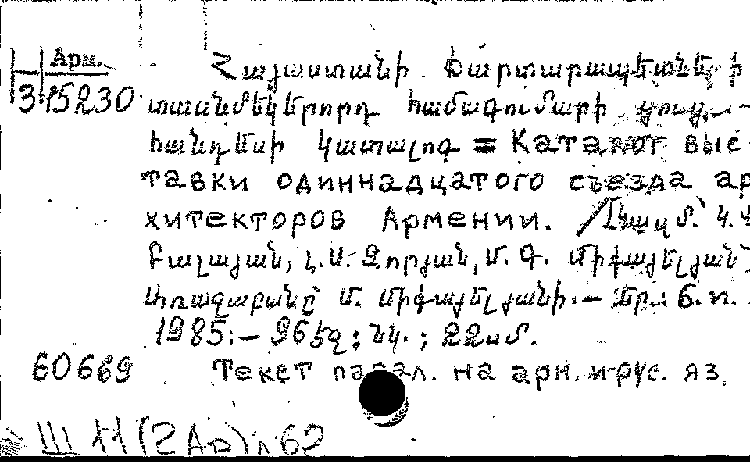 Арм.
3-15230
Հայաստանի Ճարտարապետների
տասնմեկերորդ համագումարի ցուցա-
հանդեսի կատալոգ = Каталог выс-
тавки одиннадцатого съезда ар
хитекторов Армении. /Կազմ՝
Բալայան, Լ.Ս. Զորյան, Մ.Գ. Միքայելյան
Առաջաբանը Մ. Միքայելյանի.— Եր.: Б.и.
1985.— 96 էջ; նկ.; 22 սմ.
60669 Текст парал. на арм. и рус. яз.
Ш 11(2Ар)л62